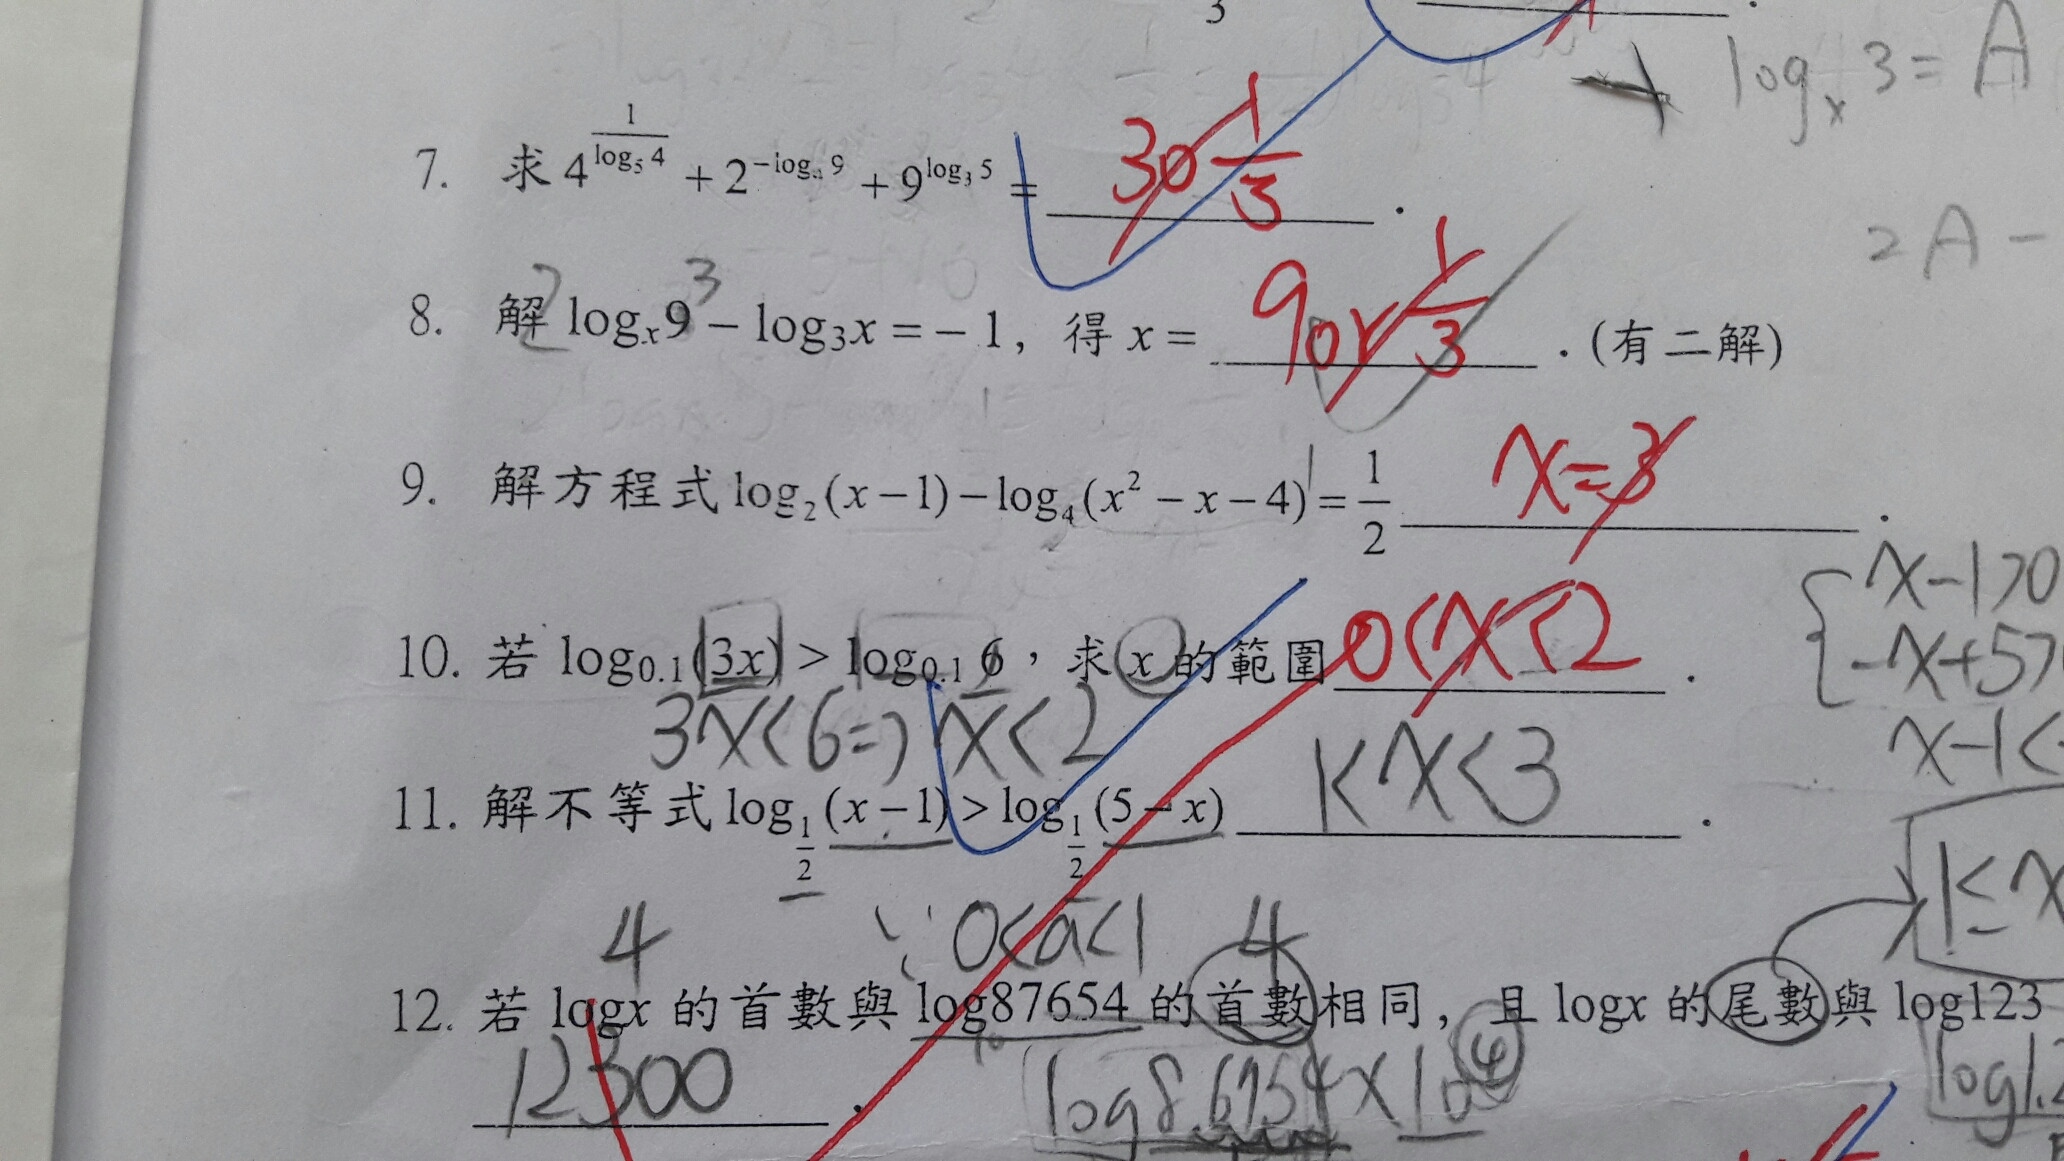 3
log_x 3 = A
7. 求 4^{\frac{1}{log_5 4}} + 2^{-log_4 9} + 9^{log_3 5} = 30 \frac{1}{3} .
2A −
8. 解 log_x 9 − log_3 x = − 1, 得 x = 9 or \frac{1}{3} . (有二解)
9. 解方程式 log_2 (x − 1) − log_4 (x^2 − x − 4) = \frac{1}{2} x = 3 .
x − 1 > 0
10. 若 log_{0.1} (3x) > log_{0.1} 6，求 x 的範圍 0 < x < 2 .
−x + 5 >
3x < 6 => x < 2
x − 1 <
11. 解不等式 log_{\frac{1}{2}} (x − 1) > log_{\frac{1}{2}} (5 − x) 1 < x < 3 .
1 ≤ x
4 ∵ 0 < a < 1 4
12. 若 logx 的首數與 log87654 的首數相同, 且 logx 的尾數與 log123
12300 . log 8.6754 × 10^4 log1.2